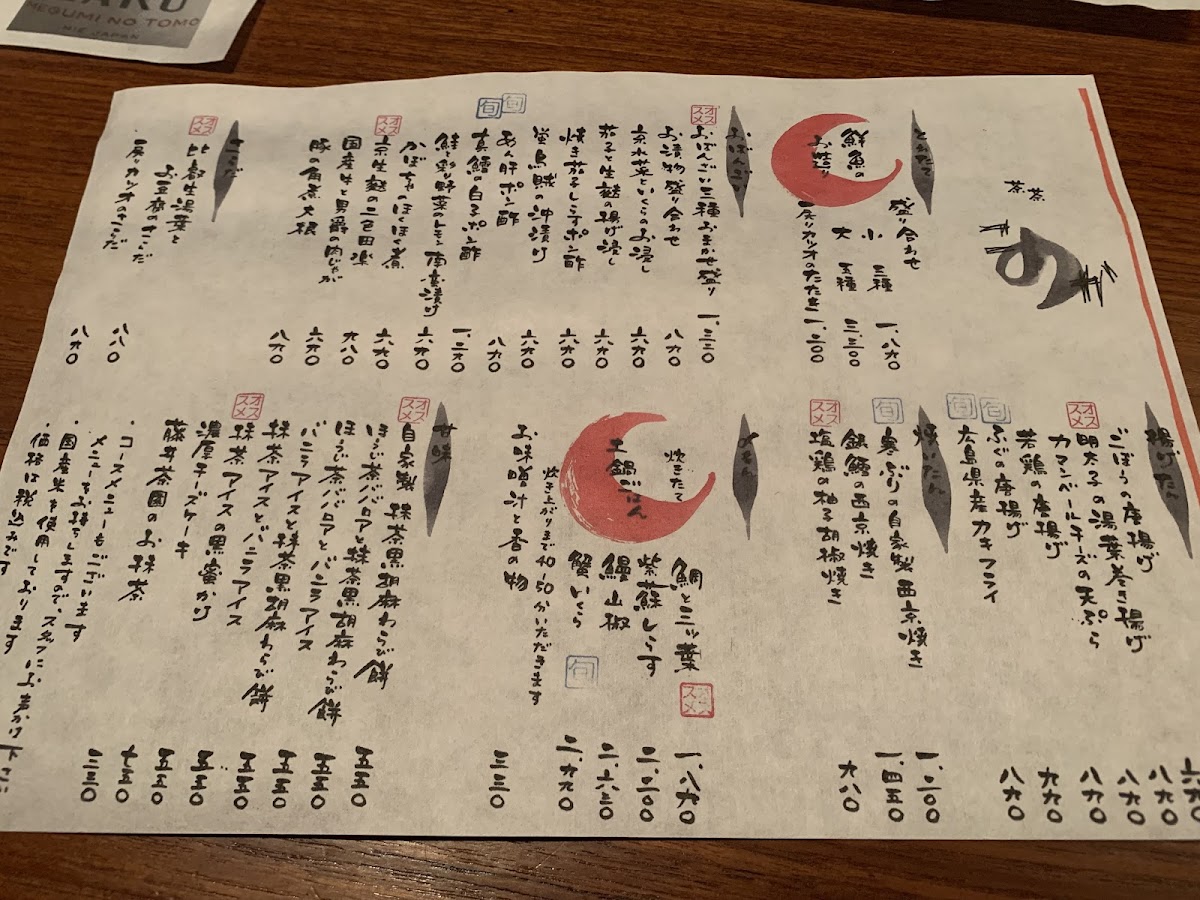 MEGUMI NO TOMO
MIE JAPAN
茶茶
鮮魚の
お造り
盛り合わせ
小 三種 一、八六〇
大 五種 三、三〇〇
戻りカツオのたたき 一、二〇〇
おばんざい
オススメ
おばんざい三種おまかせ盛り 一、三二〇
お漬物盛り合わせ 八六〇
京水菜といくらのお浸し 六六〇
茄子と生麩の揚げ浸し 六六〇
焼き茄子しらすポン酢 六六〇
蛍烏賊の沖漬け 六六〇
旬
あん肝ポン酢 八六〇
旬
真鱈の白子ポン酢 一、二六〇
鮭と彩り野菜のレモン南蛮漬け 六六〇
かぼちゃのほくほく煮 六六〇
オススメ
京生麩の二色田楽 七八〇
国産牛と男爵の肉じゃが 六六〇
豚の角煮大根 八六〇
さらだ
オススメ
比叡生湯葉と
お豆腐のさらだ 八八〇
戻りカツオのさらだ 八六〇
揚げたん
ごぼうの唐揚げ 六六〇
オススメ
明太子の湯葉巻き揚げ 八六〇
カマンベールチーズの天ぷら 八六〇
若鶏の唐揚げ 八六〇
旬
ふぐの唐揚げ 九六〇
旬
広島県産カキフライ 八六〇
焼いたん
旬
寒ぶりの自家製西京焼き 一、二〇〇
銀鱈の西京焼き 一、四五〇
オススメ
塩鶏の柚子胡椒焼き 六八〇
ごはん
炊きたて
土鍋ごはん
鯛と三ッ葉 オススメ 一、八七〇
紫蘇しらす 二、二〇〇
鰻山椒 二、六三〇
蟹いくら 旬 二、九七〇
炊き上がりまで40〜50分いただきます
お味噌汁と香の物 三三〇
甘味
オススメ
自家製 抹茶黒胡麻わらび餅 五五〇
ほうじ茶ババロアと抹茶黒胡麻わらび餅 五五〇
ほうじ茶ババロアとバニラアイス 五五〇
抹茶アイスと抹茶黒胡麻わらび餅 五五〇
抹茶アイスとバニラアイス 五五〇
オススメ
抹茶アイスの黒蜜かけ 五五〇
濃厚チーズケーキ 七五〇
藤井茶園のお抹茶 三三〇
・コースメニューもございます
メニューをお持ちしますので、スタッフにお声かけ下さい
・国産米を使用しております
・価格は税込みです